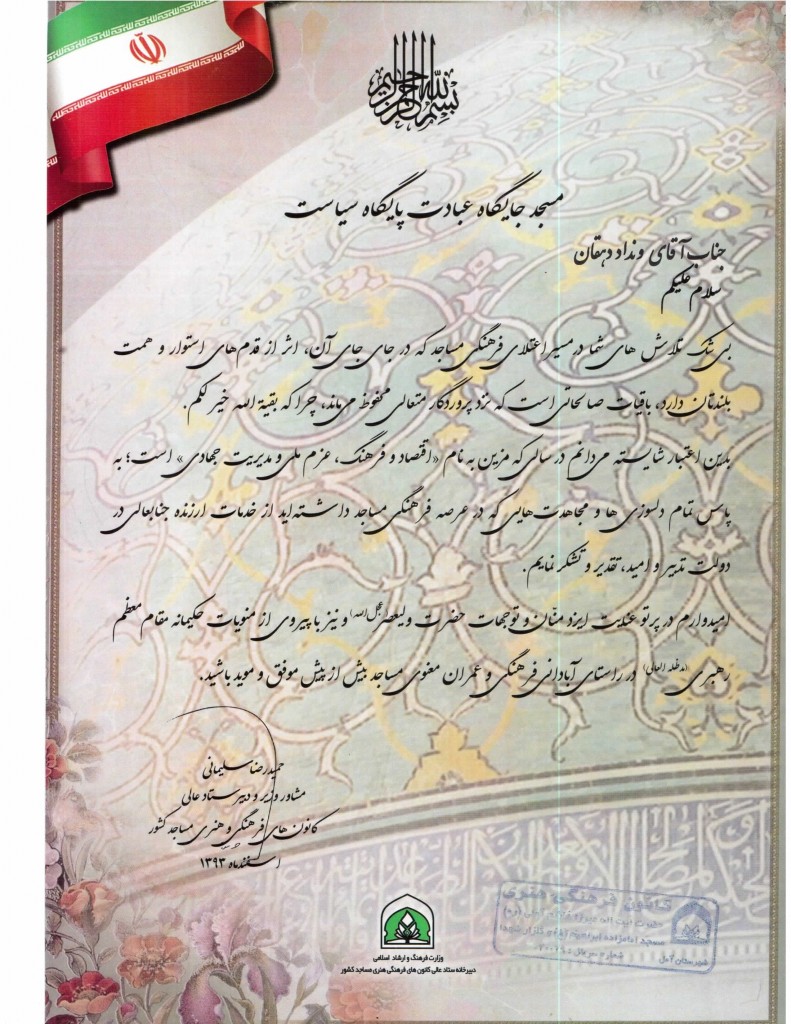 بسم الله الرحمن الرحیم
مسجد جایگاه عبادت پایگاه سیاست
جناب آقای ونداد دهقان
سلام علیکم
بی شک تلاش های شما در مسیر اعتلای فرهنگی مساجد که در جای جای آن، اثر از قدم های استوار و همت
بلندتان دارد، باقیات صالحاتی است که نزد پروردگار متعالی محفوظ می‌ماند، چرا که بقیة الله خیر لکم.
بدین اعتبار شایسته می‌دانم در سالی که مزین به نام «اقتصاد و فرهنگ، عزم ملی و مدیریت جهادی» است؛ به
پاس تمام دلسوزی ها و مجاهدت‌هایی که در عرصه فرهنگی مساجد داشته‌اید از خدمات ارزنده جنابعالی در
دولت تدبیر و امید، تقدیر و تشکر نمایم.
امیدوارم در پرتو عنایت ایزد منّان و توجهات حضرت ولیعصر(عجل الله) و نیز با پیروی از منویات حکیمانه مقام معظم
رهبری (مدظله العالی) در راستای آبادانی فرهنگی و عمران معنوی مساجد بیش از پیش موفق و موید باشید.
حمیدرضا سلیمانی
مشاور وزیر و دبیر ستاد عالی
کانون های فرهنگی و هنری مساجد کشور
اسفندماه ۱۳۹۳
وزارت فرهنگ و ارشاد اسلامی
دبیرخانه ستاد عالی کانون های فرهنگی هنری مساجد کشور
کانون فرهنگی هنری
مسجد امامزاده ابراهیم
شهرستان آمل